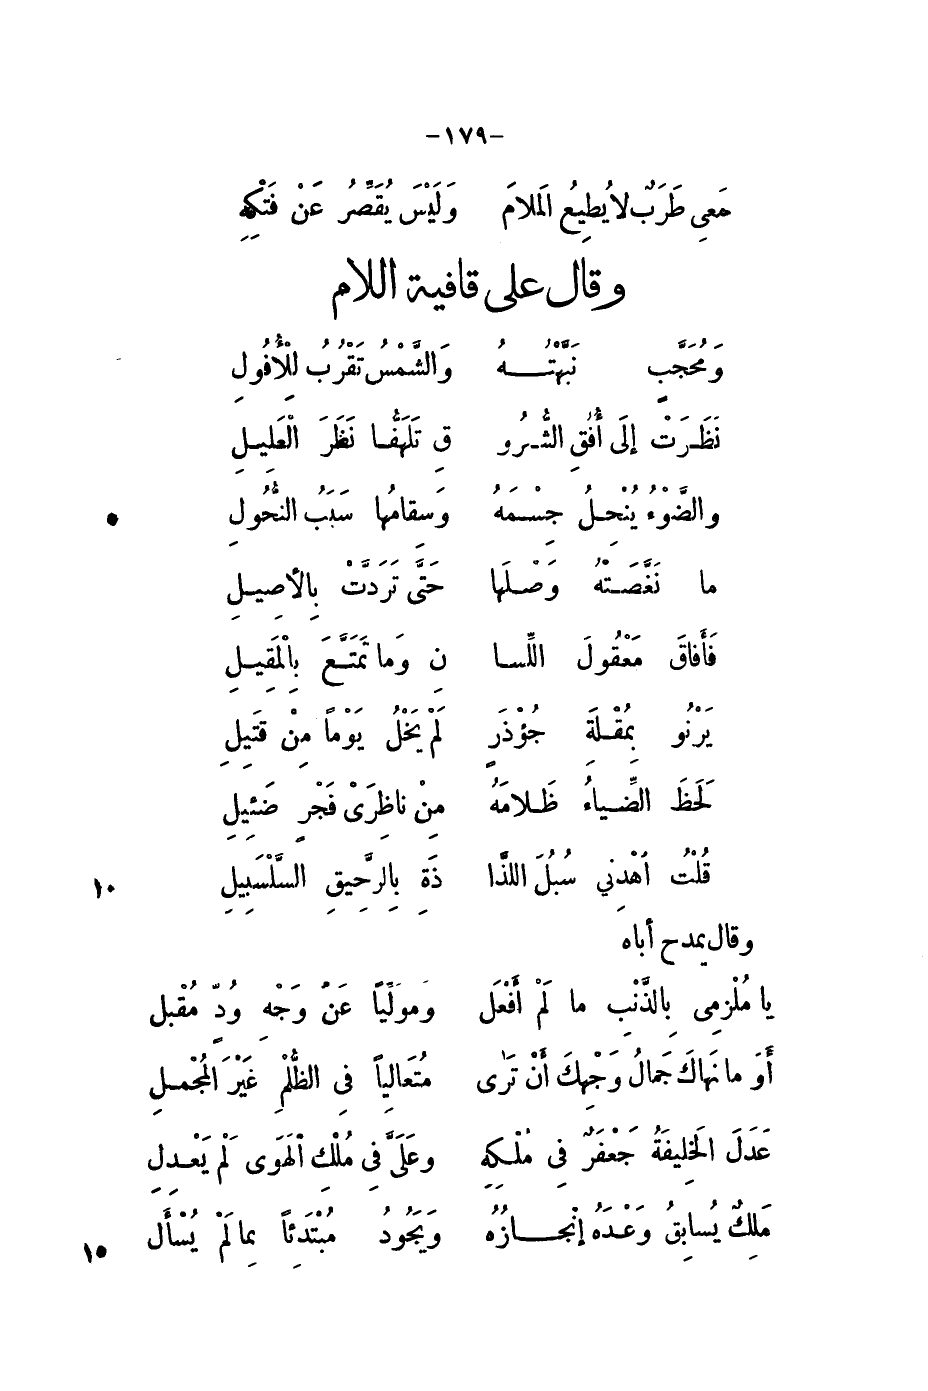 -١٧٩-
مَعِي طَرَبٌ لا يُطِيعُ الَملامَ وَلَيْسَ يُقَصِّرُ عَنْ فَتْكِهِ
وقال على قافية اللام
وَمُحَجَّبٍ نَبَّهْتُهُ وَالشَّمْسُ تَقْرُبُ لِلْأُفُولِ
نَظَرَتْ إلَى أُفُقِ الشُّرُو قِ تَلَهُّفًا نَظَرَ الْعَلِيلِ
والضَّوْءُ يُنْحِلُ جِسْمَهُ وَسِقامُها سَبَبُ النُّحُولِ ٥
ما نَغَّصَتْهُ وَصْلَها حَتَّى تَرَدَّتْ بِالأَصِيلِ
فَأَفاقَ مَعْقُولَ اللِّسا نِ وَما تَمَتَّعَ بِالْمَقِيلِ
يَرْنُو بِمُقْلَةِ جُؤْذَرٍ لَمْ يَخْلُ يَوْماً مِنْ قَتِيلِ
لَحَظَ الضِّياءُ ظَلامَهُ مِنْ ناظِرَىْ فَجْرٍ ضَئِيلِ
قُلْتُ اهْدِنِي سُبُلَ اللذَّا ذَةِ بِالرَّحِيقِ السَّلْسَبِيلِ ١٠
وقال يمدح أباه
يا مُلْزِمِى بِالذَّنْبِ ما لَمْ أَفْعَلِ ومولِّياً عَنْ وَجْهِ وُدٍّ مُقْبِلِ
أَوَ ما نَهاكَ جَمالُ وَجْهِكَ أَنْ تَرَى مُتَعالِياً فِى الظُّلْمِ غَيْرَ الُمجْمِلِ
عَدَلَ الَخلِيفَةُ جَعْفَرٌ فِى مُلْكِهِ وعَلَىَّ فِى مُلْكِ الْهَوَى لَمْ يَعْدِلِ
مَلِكٌ يُسابِقُ وَعْدَهُ إنْجازُهُ وَيَجُودُ مُبْتَدِئاً بِما لَمْ يُسْأَلِ ١٥